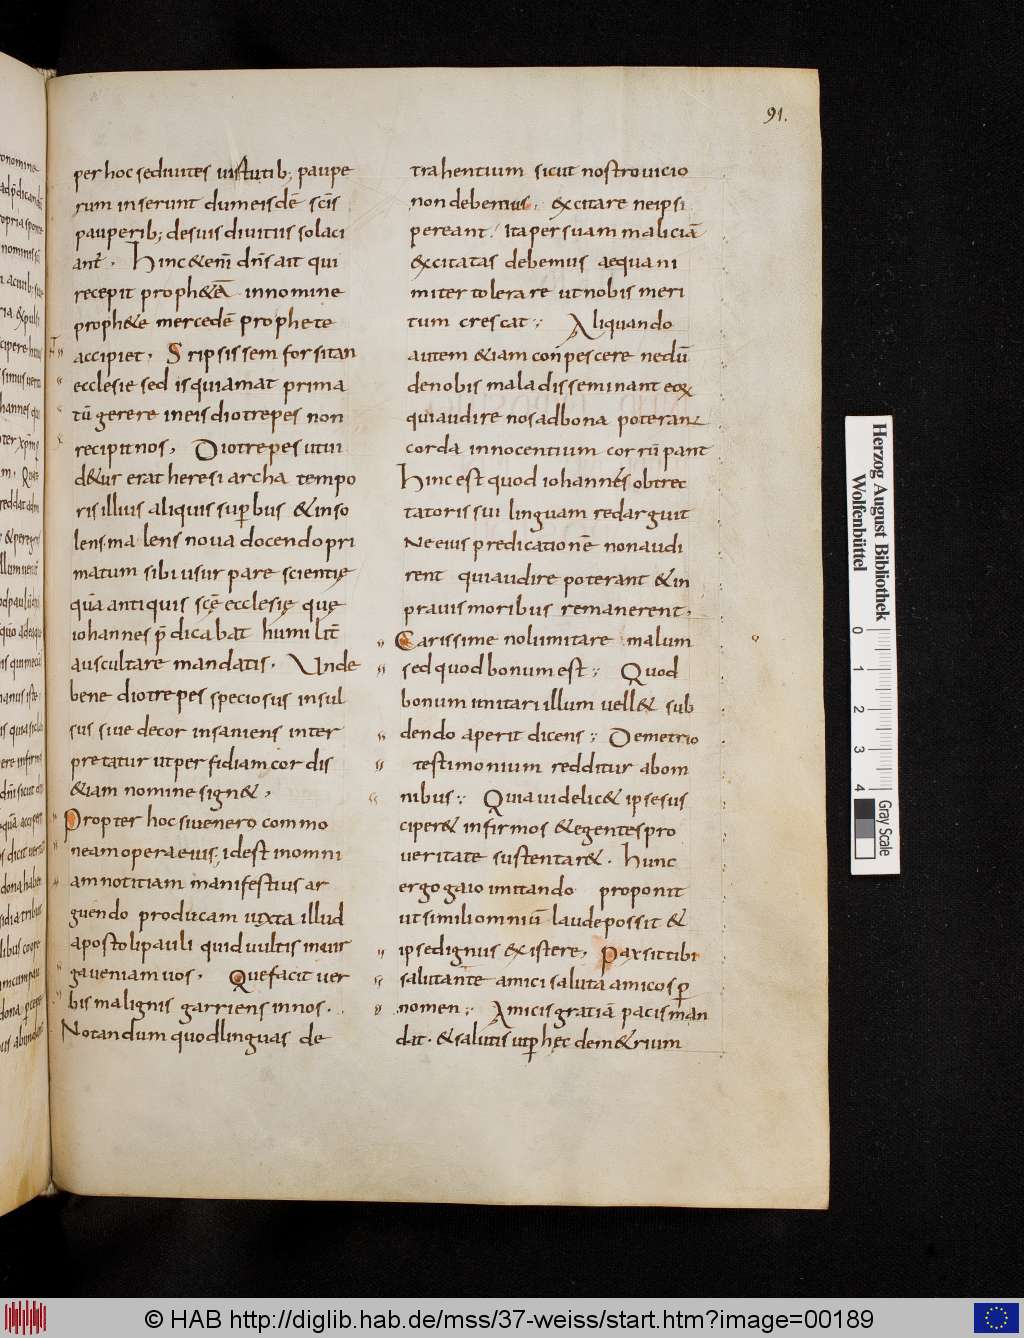 91.
per hoc sed iuites iustu tib; paupe
rum inserunt dum eisdē scīs
pauperib; de suis diuitiis solaci
ant̄. Hinc &enī dn̄s ait qui
recepit proph&ā in nomine
proph&e mercedē prophete
accipiet. Sripsissem forsitan
ecclesie sed is qui amat prima
tū gerere in eis diotrepes non
recipit nos. Diotrepes ut ui
d&ur erat heresiarcha tempo
ris illius aliquis suꝑbus & inso
lens. ma lens noua docendo pri
matum sibi usurpare scientię
quā antiquis scę̄ ecclesię quę
iohannes p̄dicabat humilit̄
auscultare mandatis. Unde
bene diotrepes speciosus insul
sus siue decor insaniens inter
pretatur ut perfidiam cordis
&iam nomine sign&.
Propter hoc si uenero commo
neam opera eius. id est in omni
am notitiam manifestius ar
guendo producam iuxta illud
apostoli pauli quid uultis in uir
ga ueniam uos. Que facit uer
bis malignis garriens in nos.
Notandum quod linguas de
trahentium sicut nostro uicio
non debemus. excitare ne ipsi
pereant. Ita per suam maliciā
excitatas debemus aequani
miter tolerare ut nobis meri
tum crescat; Aliquando
autem &iam conpescere nedū
de nobis mala disseminant eoꝝ
qui audire nos ad bona poterant
corda innocentium corrūpant
Hinc est quod iohannes obtrec
tatoris sui linguam redarguit
Ne eius predicationē non audi
rent qui audire poterant & in
prauis moribus remanerent.
Carissime noli imitare malum
sed quod bonum est; Quod
bonum imitari illum uell& sub
dendo aperit dicens; Demetrio
testimonium redditur ab om
nibus; Quia uidelic& ipse sus
ciper& infirmos & egentes pro
ueritate sustentar&. Hunc
ergo gaio imitando proponit
ut simili omniū laude possit &
ipse dignus existere. Pax sit tibi
salutante amici saluta amicos ꝑ
nomen; Amicis gratiā pacis man
dat. & salutis ut ꝑ hęc dem&rium
Herzog August Bibliothek
Wolfenbüttel
0 1 2 3 4
Gray Scale
© HAB http://diglib.hab.de/mss/37-weiss/start.htm?image=00189